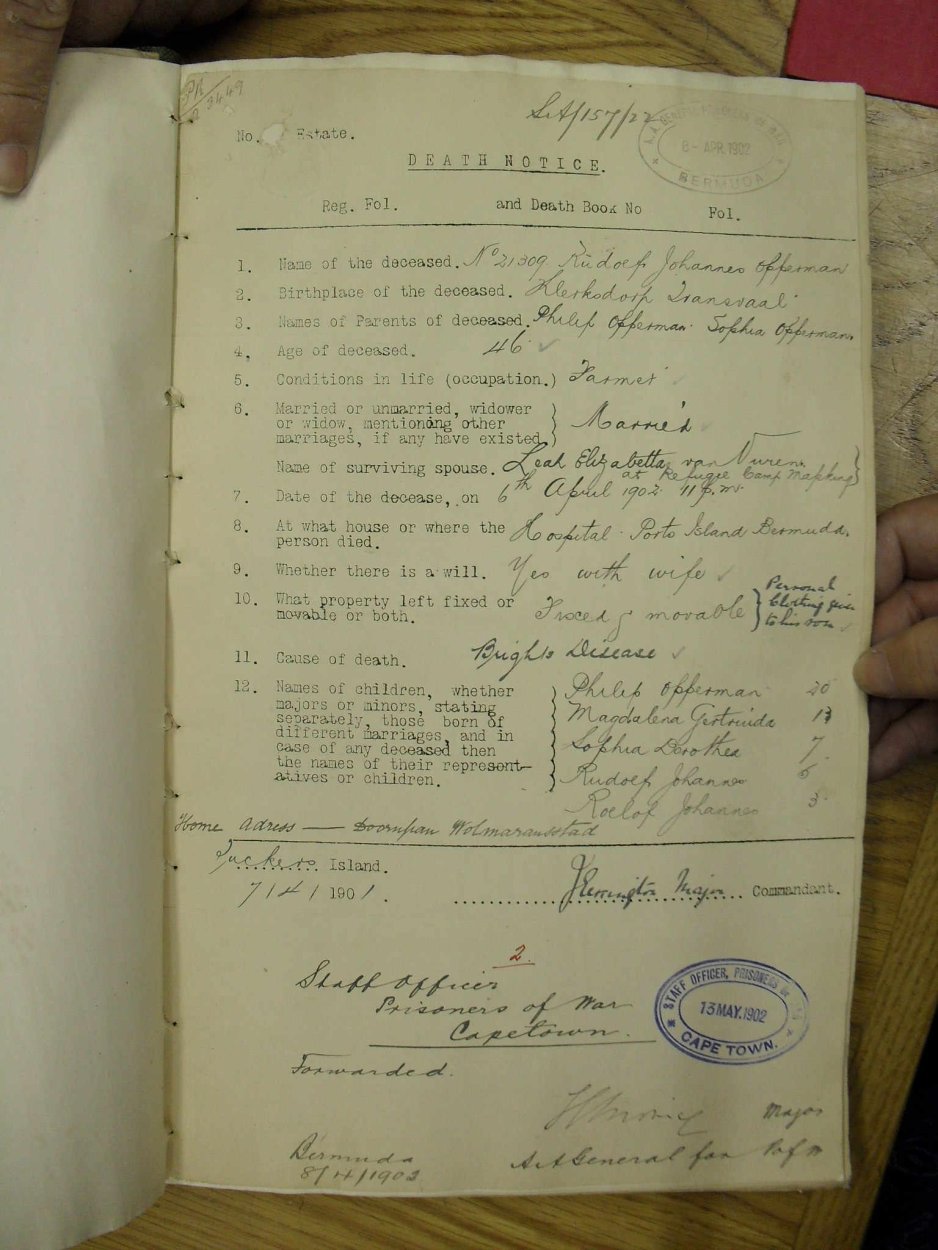 PR/
2 3449
StA/157/22
A.A. GENERAL PRISONERS OF WAR
8- APR.1902
BERMUDA
No. Estate.
DEATH NOTICE.
Reg. Fol. and Death Book No Fol.
1. Name of the deceased. No 21309 Rudolf Johannes Opperman
2. Birthplace of the deceased. Klerksdorp Transvaal
3. Names of Parents of deceased. Philip Opperman. Sophia Opperman.
4, Age of deceased. 46
5. Conditions in life (occupation.) Farmer
6. Married or unmarried, widower
or widow, mentioning other
marriages, if any have existed.) Married
Name of surviving spouse. Leah Elizabetta van Vuren.
at Refugie Camp Mapking
7. Date of the decease, on 6th April 1902 11 p.m.
8. At what house or where the
person died. Hospital. Ports Island Bermuda.
9. Whether there is a will. Yes with wife
10. What property left fixed or
movable or both. Fixed & movable
Personal
Clothing given
to his son
11. Cause of death. Brights Disease
12. Names of children, whether
majors or minors, stating
separately, those born of
different marriages, and in
case of any deceased then
the names of their represent-
atives or children.
Philip Opperman 20
Magdalena Gertruida 13
Sophia Dorothea 7
Rudolf Johannes 6
Roelof Johannes 3
Home Adress — Doornpan Wolmaransstad
Tuckers Island.
7/4/1901. Major Commandant.
2.
Staff Officer
Prisoners of War
Capetown.
STAFF OFFICER, PRISONERS OF WAR
13 MAY.1902
CAPE TOWN.
Forwarded.
Major
AA General for P of W
Bermuda
8/4/1902